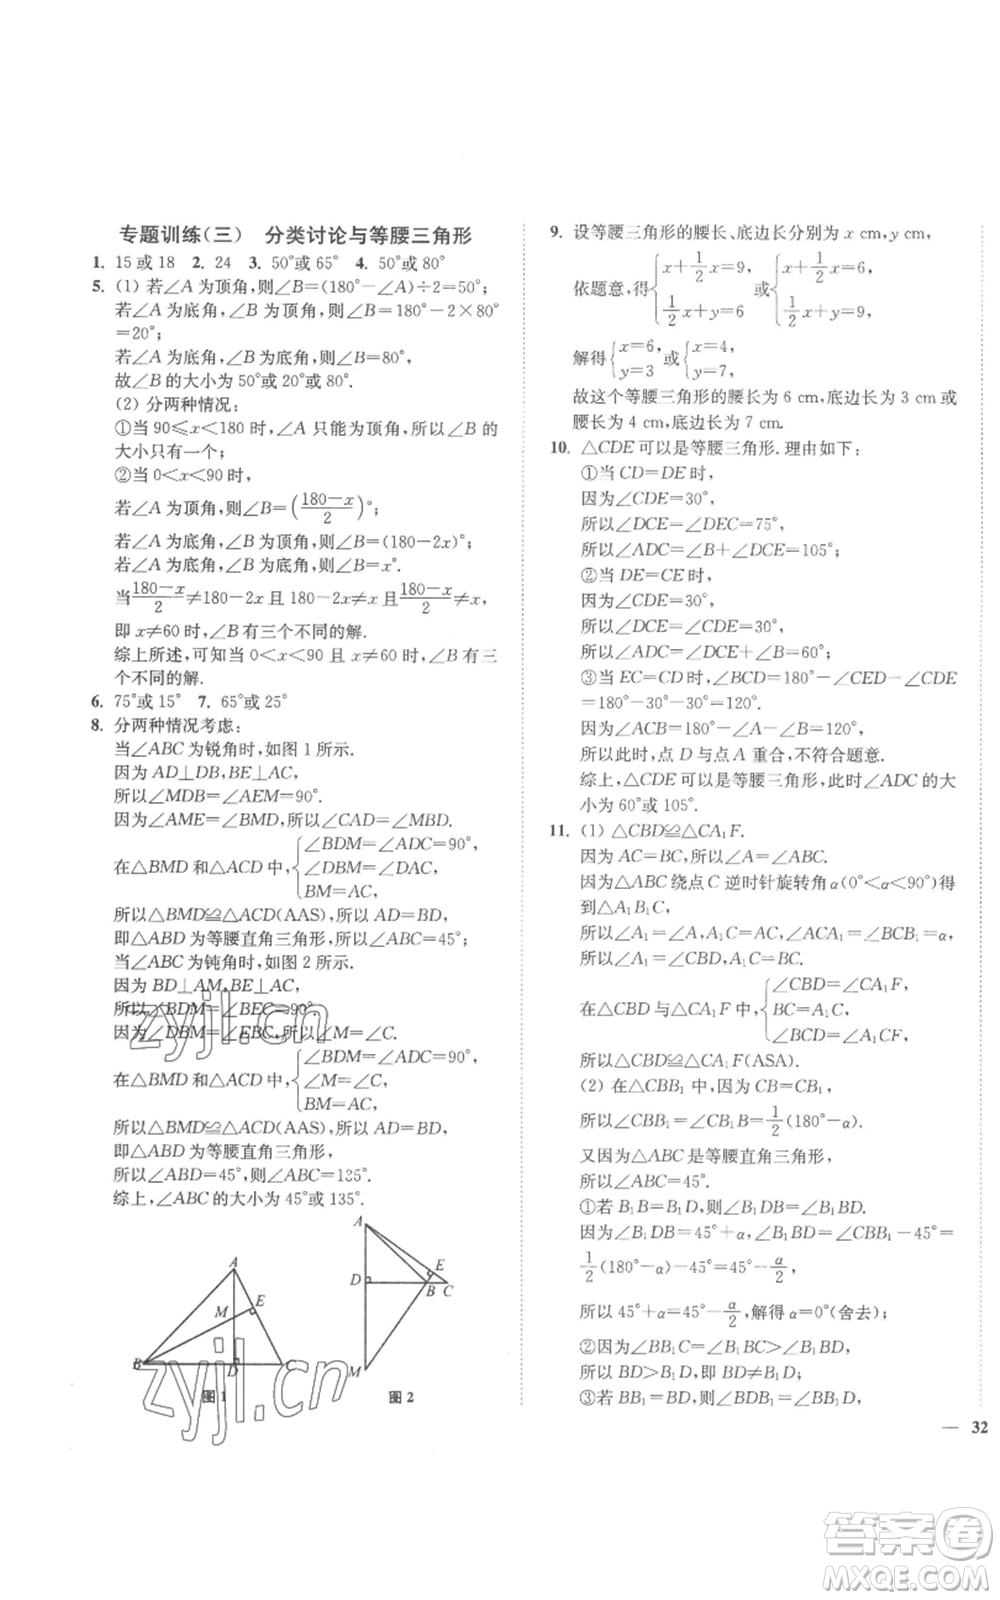 专题训练(三) 分类讨论与等腰三角形
1. 15或18 2. 24 3. 50°或65° 4. 50°或80°
5. (1) 若∠A为顶角,则∠B=(180°-∠A)÷2=50°;
若∠A为底角,∠B为顶角,则∠B=180°-2×80°
=20°;
若∠A为底角,∠B为底角,则∠B=80°,
故∠B的大小为50°或20°或80°.
(2) 分两种情况:
①当90≤x<180时,∠A只能为顶角,所以∠B的
大小只有一个;
②当0<x<90时,
若∠A为顶角,则∠B=(180-x/2)°;
若∠A为底角,∠B为顶角,则∠B=(180-2x)°;
若∠A为底角,∠B为底角,则∠B=x°.
当180-x/2≠180-2x且180-2x≠x且180-x/2≠x,
即x≠60时,∠B有三个不同的解.
综上所述,可知当0<x<90且x≠60时,∠B有三
个不同的解.
6. 75°或15° 7. 65°或25°
8. 分两种情况考虑:
当∠ABC为锐角时,如图1所示.
因为AD⊥DB,BE⊥AC,
所以∠MDB=∠AEM=90°.
因为∠AME=∠BMD,所以∠CAD=∠MBD.
在△BMD和△ACD中,{∠BDM=∠ADC=90°, ∠DBM=∠DAC, BM=AC,
所以△BMD≌△ACD(AAS),所以AD=BD,
即△ABD为等腰直角三角形,所以∠ABC=45°;
当∠ABC为钝角时,如图2所示.
因为BD⊥AM,BE⊥AC,
所以∠BDM=∠BEC=90°.
因为∠DBM=∠EBC,所以∠M=∠C.
在△BMD和△ACD中,{∠BDM=∠ADC=90°, ∠M=∠C, BM=AC,
所以△BMD≌△ACD(AAS),所以AD=BD,
即△ABD为等腰直角三角形,
所以∠ABD=45°,则∠ABC=135°.
综上,∠ABC的大小为45°或135°.
A
M
E
B
D
图1
A
D
E
B
C
M
图2
9. 设等腰三角形的腰长、底边长分别为x cm,y cm,
依题意,得{x+1/2x=9, 1/2x+y=6 或{x+1/2x=6, 1/2x+y=9,
解得{x=6, y=3 或{x=4, y=7,
故这个等腰三角形的腰长为6 cm,底边长为3 cm或
腰长为4 cm,底边长为7 cm.
10. △CDE可以是等腰三角形.理由如下:
①当CD=DE时,
因为∠CDE=30°,
所以∠DCE=∠DEC=75°,
所以∠ADC=∠B+∠DCE=105°;
②当DE=CE时,
因为∠CDE=30°,
所以∠DCE=∠CDE=30°,
所以∠ADC=∠DCE+∠B=60°;
③当EC=CD时,∠BCD=180°-∠CED-∠CDE
=180°-30°-30°=120°.
因为∠ACB=180°-∠A-∠B=120°,
所以此时,点D与点A重合,不符合题意.
综上,△CDE可以是等腰三角形,此时∠ADC的大
小为60°或105°.
11. (1) △CBD≌△CA₁F.
因为AC=BC,所以∠A=∠ABC.
因为△ABC绕点C逆时针旋转角α(0°<α<90°)得
到△A₁B₁C,
所以∠A₁=∠A,A₁C=AC,∠ACA₁=∠BCB₁=α,
所以∠A₁=∠CBD,A₁C=BC.
在△CBD与△CA₁F中,{∠CBD=∠CA₁F, BC=A₁C, ∠BCD=∠A₁CF,
所以△CBD≌△CA₁F(ASA).
(2) 在△CBB₁中,因为CB=CB₁,
所以∠CBB₁=∠CB₁B=1/2(180°-α).
又因为△ABC是等腰直角三角形,
所以∠ABC=45°.
①若B₁B=B₁D,则∠B₁DB=∠B₁BD.
因为∠B₁DB=45°+α,∠B₁BD=∠CBB₁-45°=
1/2(180°-α)-45°=45°-α/2,
所以45°+α=45°-α/2,解得α=0°(舍去);
②因为∠BB₁C=∠B₁BC>∠B₁BD,
所以BD>B₁D,即BD≠B₁D;
③若BB₁=BD,则∠BDB₁=∠BB₁D,
— 32
zyjl.cn
zyjl.cn
答案卷
MXQE.COM